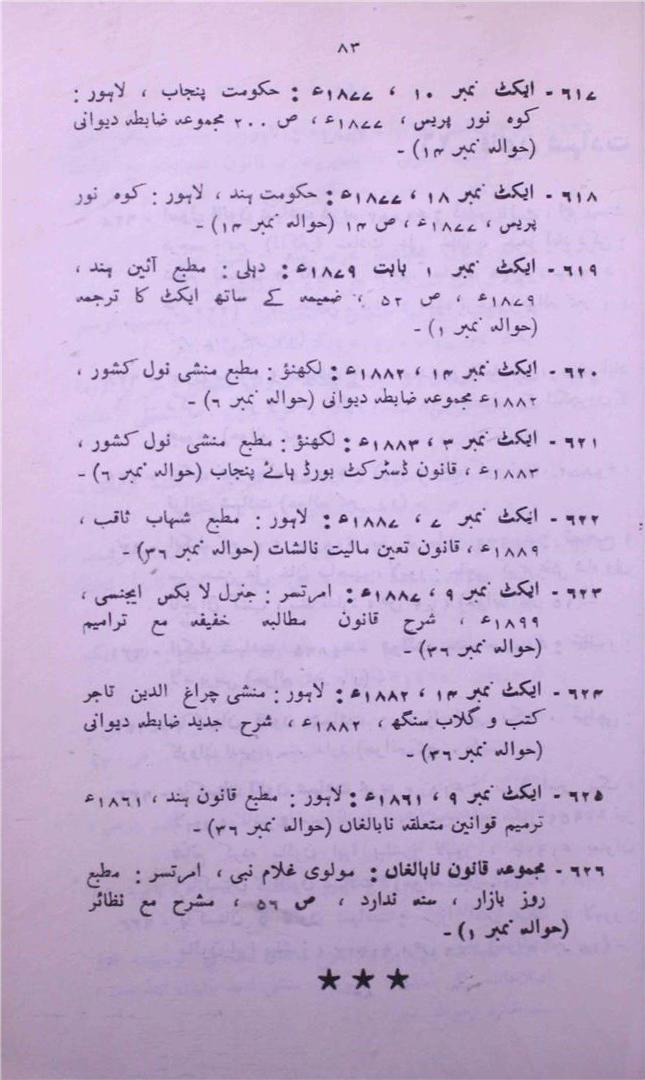 ۸۳
۶۱۷ - ایکٹ نمبر ۱۰ ، ۱۸۷۷ء : حکومت پنجاب ، لاہور :
کوہ نور پریس ، ۱۸۷۷ء ، ص ۲۰۰ مجموعہ ضابطہ دیوانی
(حوالہ نمبر ۱۴) -
۶۱۸ - ایکٹ نمبر ۱۸ ، ۱۸۷۷ء : حکومت ہند ، لاہور : کوہ نور
پریس ، ۱۸۷۷ء ، ص ۱۴ (حوالہ نمبر ۱۴) -
۶۱۹ - ایکٹ نمبر ۱ بابت ۱۸۷۹ء : دہلی : مطبع آئین ہند ،
۱۸۷۹ء ، ص ۵۲ ، ضمیمہ کے ساتھ ایکٹ کا ترجمہ
(حوالہ نمبر ۱) -
۶۲۰ - ایکٹ نمبر ۱۴ ، ۱۸۸۲ء : لکھنؤ : مطبع منشی نول کشور ،
۱۸۸۲ء مجموعہ ضابطہ دیوانی (حوالہ نمبر ۶) -
۶۲۱ - ایکٹ نمبر ۳ ، ۱۸۸۳ء : لکھنؤ : مطبع منشی نول کشور ،
۱۸۸۳ء ، قانون ڈسٹرکٹ بورڈ ہائے پنجاب (حوالہ نمبر ۶) -
۶۲۲ - ایکٹ نمبر ۷ ، ۱۸۸۷ء : لاہور : مطبع شہاب ثاقب ،
۱۸۸۹ء ، قانون تعین مالیت نالشات (حوالہ نمبر ۳۶) -
۶۲۳ - ایکٹ نمبر ۹ ، ۱۸۸۷ء : امرتسر : جنرل لا بکس ایجنسی ،
۱۸۹۹ء ، شرح قانون مطالبہ خفیفہ مع ترامیم
(حوالہ نمبر ۳۶) -
۶۲۴ - ایکٹ نمبر ۱۴ ، ۱۸۸۲ء : لاہور : منشی چراغ الدین تاجر
کتب و گلاب سنگھ ، ۱۸۸۲ء ، شرح جدید ضابطہ دیوانی
(حوالہ نمبر ۳۶) -
۶۲۵ - ایکٹ نمبر ۹ ، ۱۸۶۱ء : لاہور : مطبع قانون ہند ، ۱۸۶۱ء
ترمیم قوانین متعلقہ نابالغان (حوالہ نمبر ۳۶) -
۶۲۶ - مجموعہ قانون نابالغان : مولوی غلام نبی ، امرتسر : مطبع
روز بازار ، سنہ ندارد ، ص ۵۶ ، مشرح مع نظائر
(حوالہ نمبر ۱) -
★ ★ ★